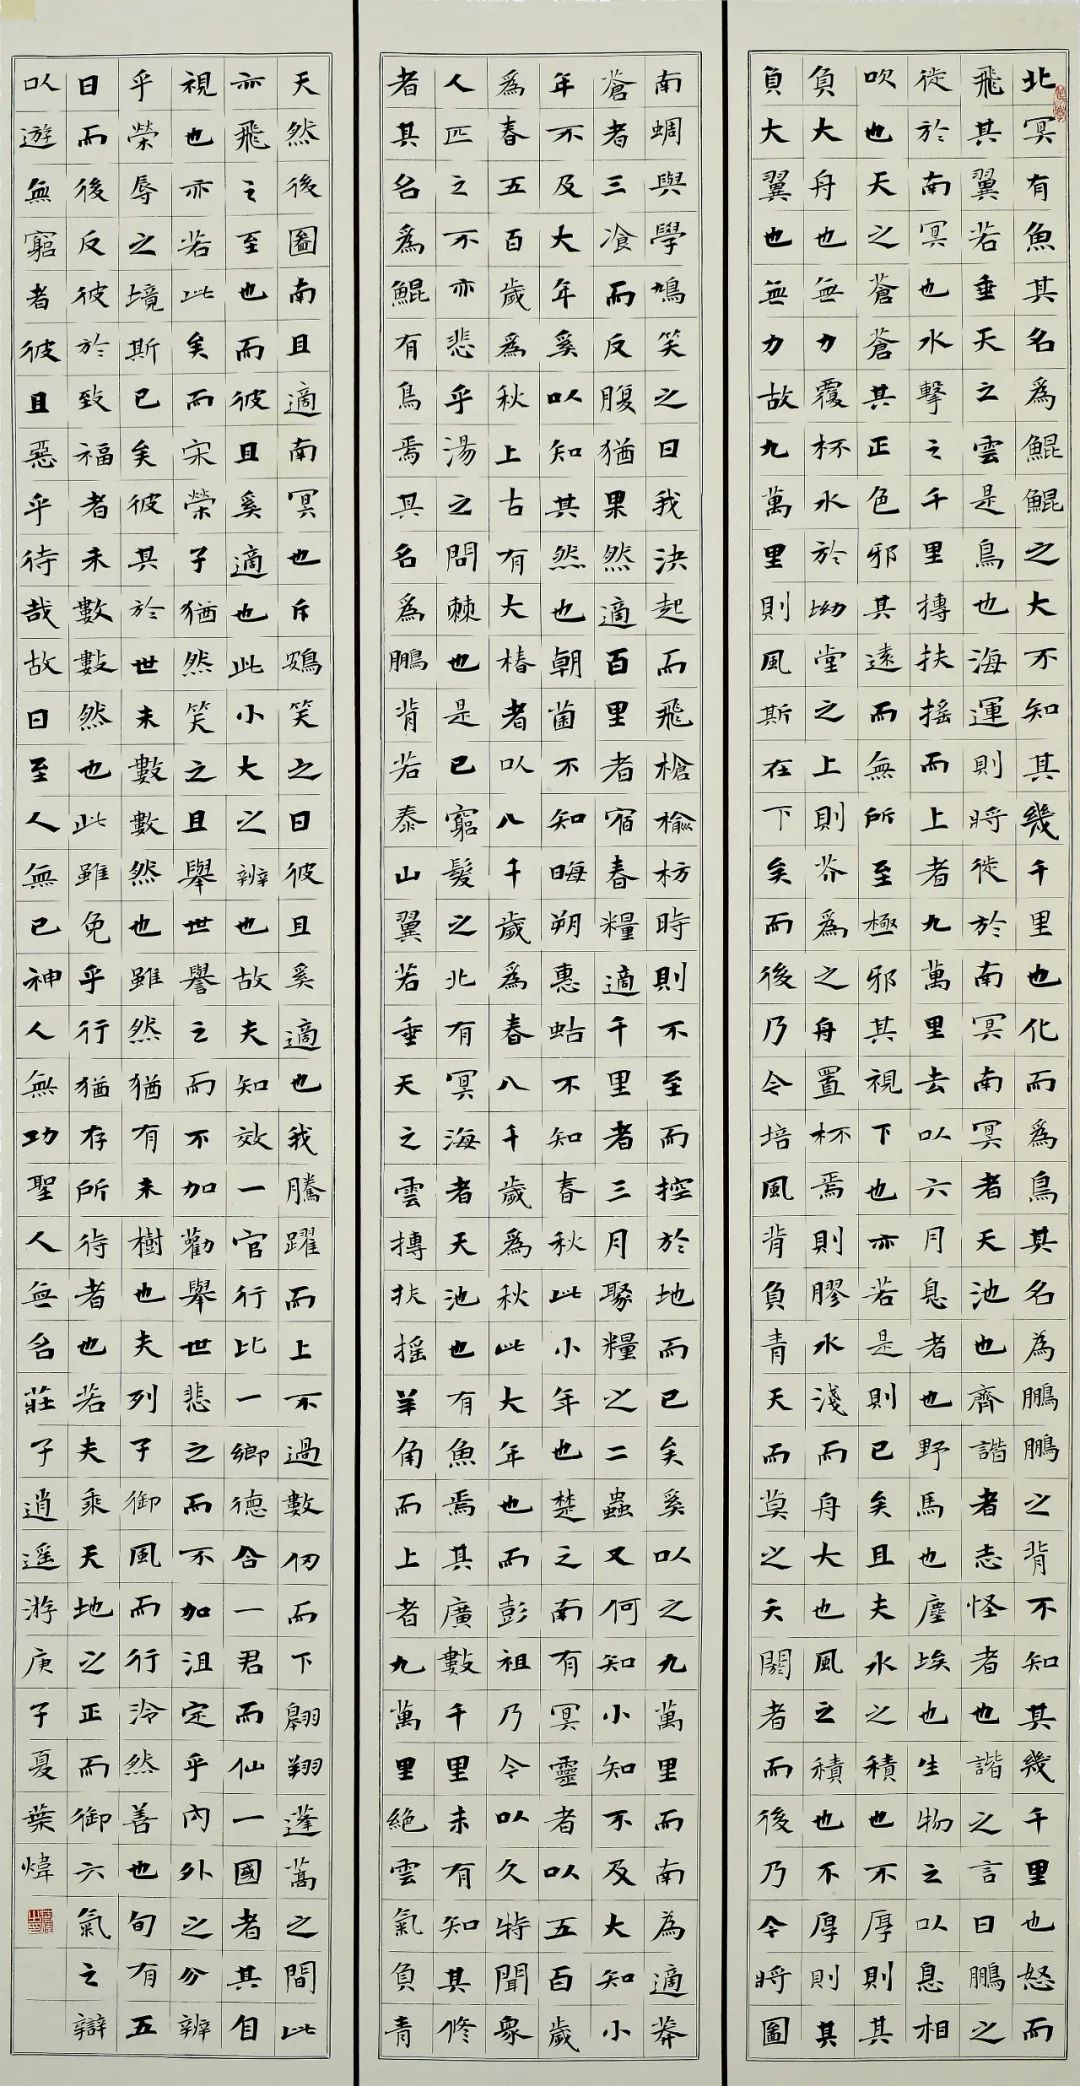 北冥有魚其名爲鯤鯤之大不知其幾千里也化而爲鳥其名為鵬鵬之背不知其幾千里也怒而
飛其翼若垂天之雲是鳥也海運則將徙於南冥南冥者天池也齊諧者志怪者也諧之言曰鵬之
徙於南冥也水擊之千里摶扶摇而上者九萬里去以六月息者也野馬也塵埃也生物之以息相
吹也天之蒼蒼其正色邪其遠而無所至極邪其視下也亦若是則已矣且夫水之積也不厚則其
負大舟也無力覆杯水於坳堂之上則芥為之舟置杯焉則膠水淺而舟大也風之積也不厚則其
負大翼也無力故九萬里則風斯在下矣而後乃今培風背負青天而莫之夭閼者而後乃今將圖
南蜩與學鳩笑之曰我決起而飛槍榆枋時則不至而控於地而已矣奚以之九萬里而南為適莽
蒼者三飡而反腹猶果然適百里者宿舂糧適千里者三月聚糧之二蟲又何知小知不及大知小
年不及大年奚以知其然也朝菌不知晦朔惠蛄不知春秋此小年也楚之南有冥靈者以五百歲
爲春五百歲爲秋上古有大椿者以八千歲爲春八千歲爲秋此大年也而彭祖乃今以久特聞眾
人匹之不亦悲乎湯之問棘也是已窮髮之北有冥海者天池也有魚焉其廣數千里未有知其修
者其名爲鯤有鳥焉其名爲鵬背若泰山翼若垂天之雲摶扶摇羊角而上者九萬里絕雲氣負青
天然後圖南且適南冥也斥鴳笑之曰彼且奚適也我騰躍而上不過數仞而下翱翔蓬蒿之間此
亦飛之至也而彼且奚適也此小大之辨也故夫知效一官行比一鄉德合一君而仙一國者其自
視也亦若此矣而宋榮子猶然笑之且舉世譽之而不加勸舉世悲之而不加沮定乎內外之分辨
乎榮辱之境斯已矣彼其於世未數數然也雖然猶有未樹也夫列子御風而行泠然善也旬有五
日而後反彼於致福者未數數然也此雖免乎行猶存所待者也若夫乘天地之正而御六氣之辯
以遊無窮者彼且惡乎待哉故曰至人無己神人無功聖人無名莊子逍遥游庚子夏葉煒